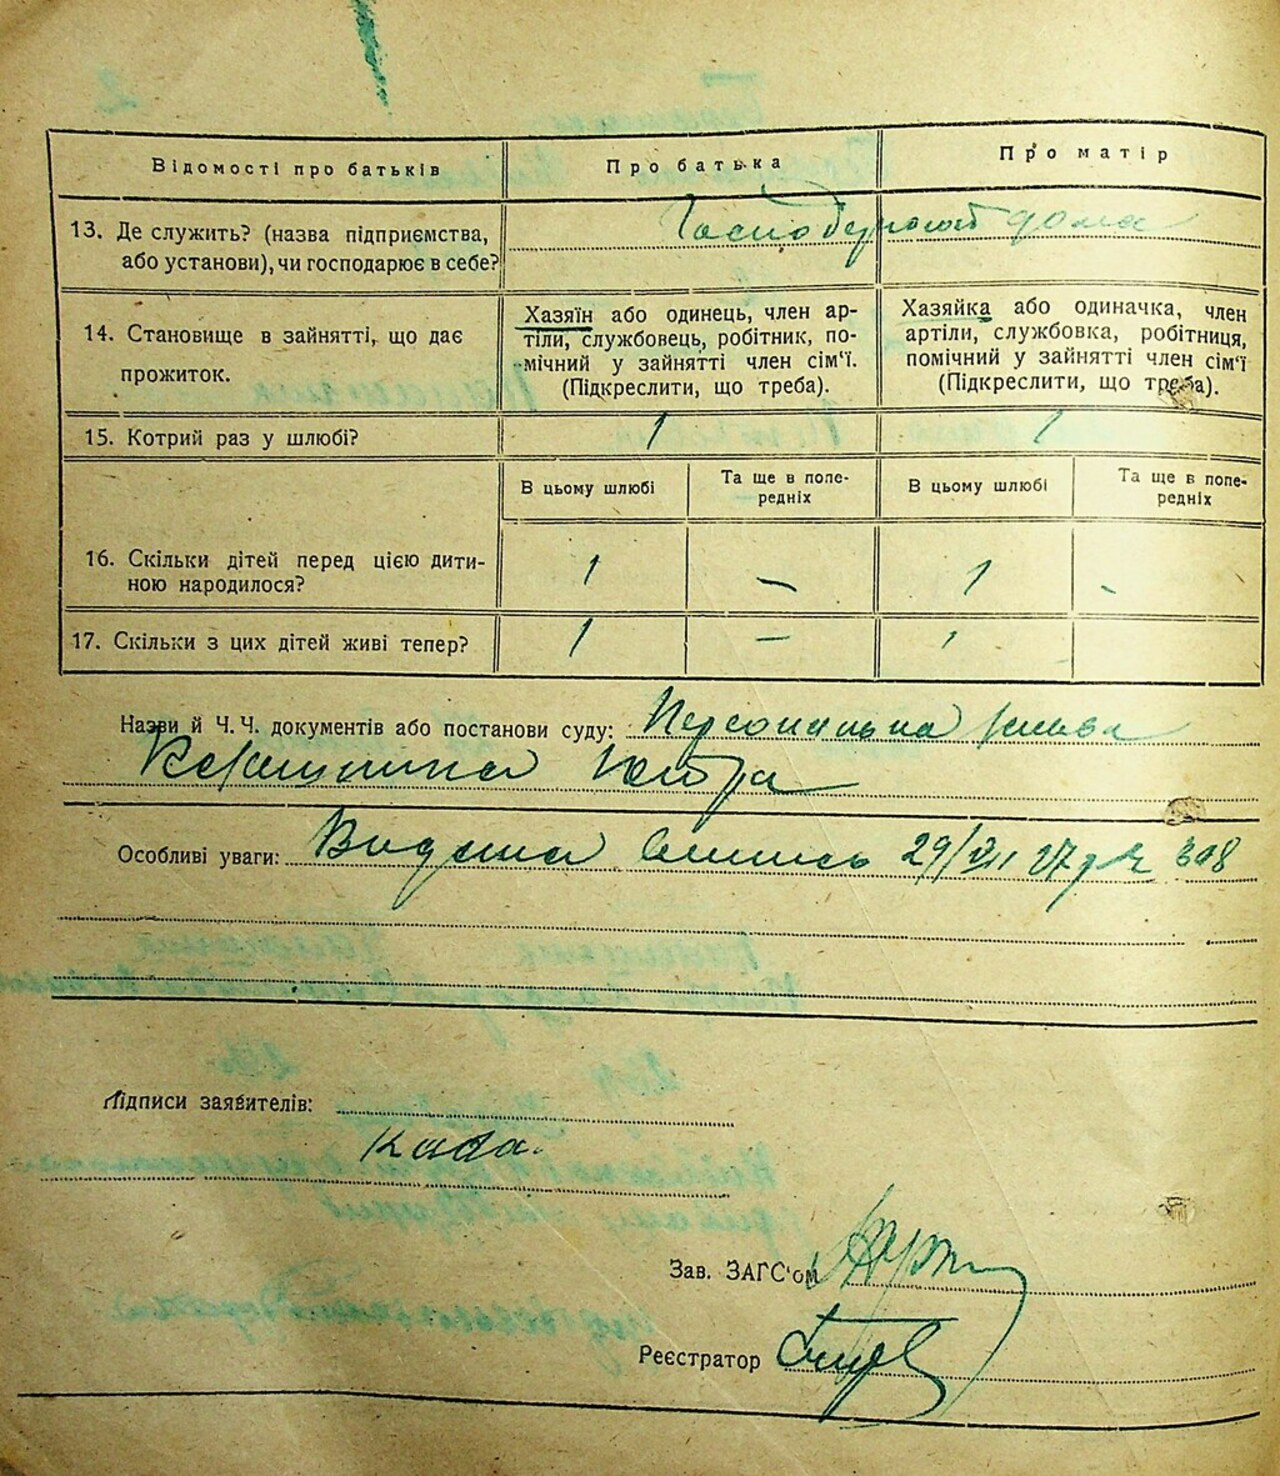 Відомості про батьків
Про батька
Про матір
13. Де служить? (назва підприємства,
або установи), чи господарює в себе?
дома
14. Становище в зайнятті, що дає
прожиток.
Хазяїн або одинець, член ар-
тіли, службовець, робітник, по-
мічний у зайнятті член сім'ї.
(Підкреслити, що треба).
Хазяйка або одиначка, член
артіли, службовка, робітниця,
помічний у зайнятті член сім'ї
(Підкреслити, що треба).
15. Котрий раз у шлюбі?
1
1
В цьому шлюбі
Та ще в попе-
редніх
В цьому шлюбі
Та ще в попе-
редніх
16. Скільки дітей перед цією дити-
ною народилося?
1
–
1
-
17. Скільки з цих дітей живі тепер?
1
–
1
Назви й Ч. Ч. документів або постанови суду: Персональна
Особливі уваги: 29/VII 27 р 308
Підписи заявителів:
Зав. ЗАГС'ом
Реєстратор